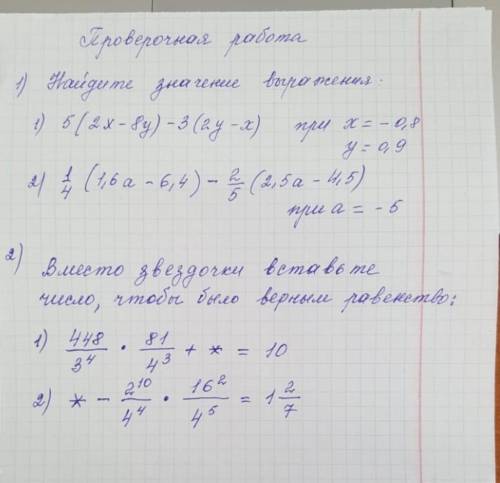 Проверочная работа
1) Найдите значение выражения:
1) 5(2x-8y)-3(2y-x) при x=-0,8
y=0,9
2) 1/4 (1,6a-6,4) - 2/5 (2,5a-4,5)
при a=-5
2) Вместо звездочки вставьте
число, чтобы было верным равенство:
1) 448/3⁴ · 81/4³ + * = 10
2) * - 2¹⁰/4⁴ · 16²/4⁵ = 1 2/7